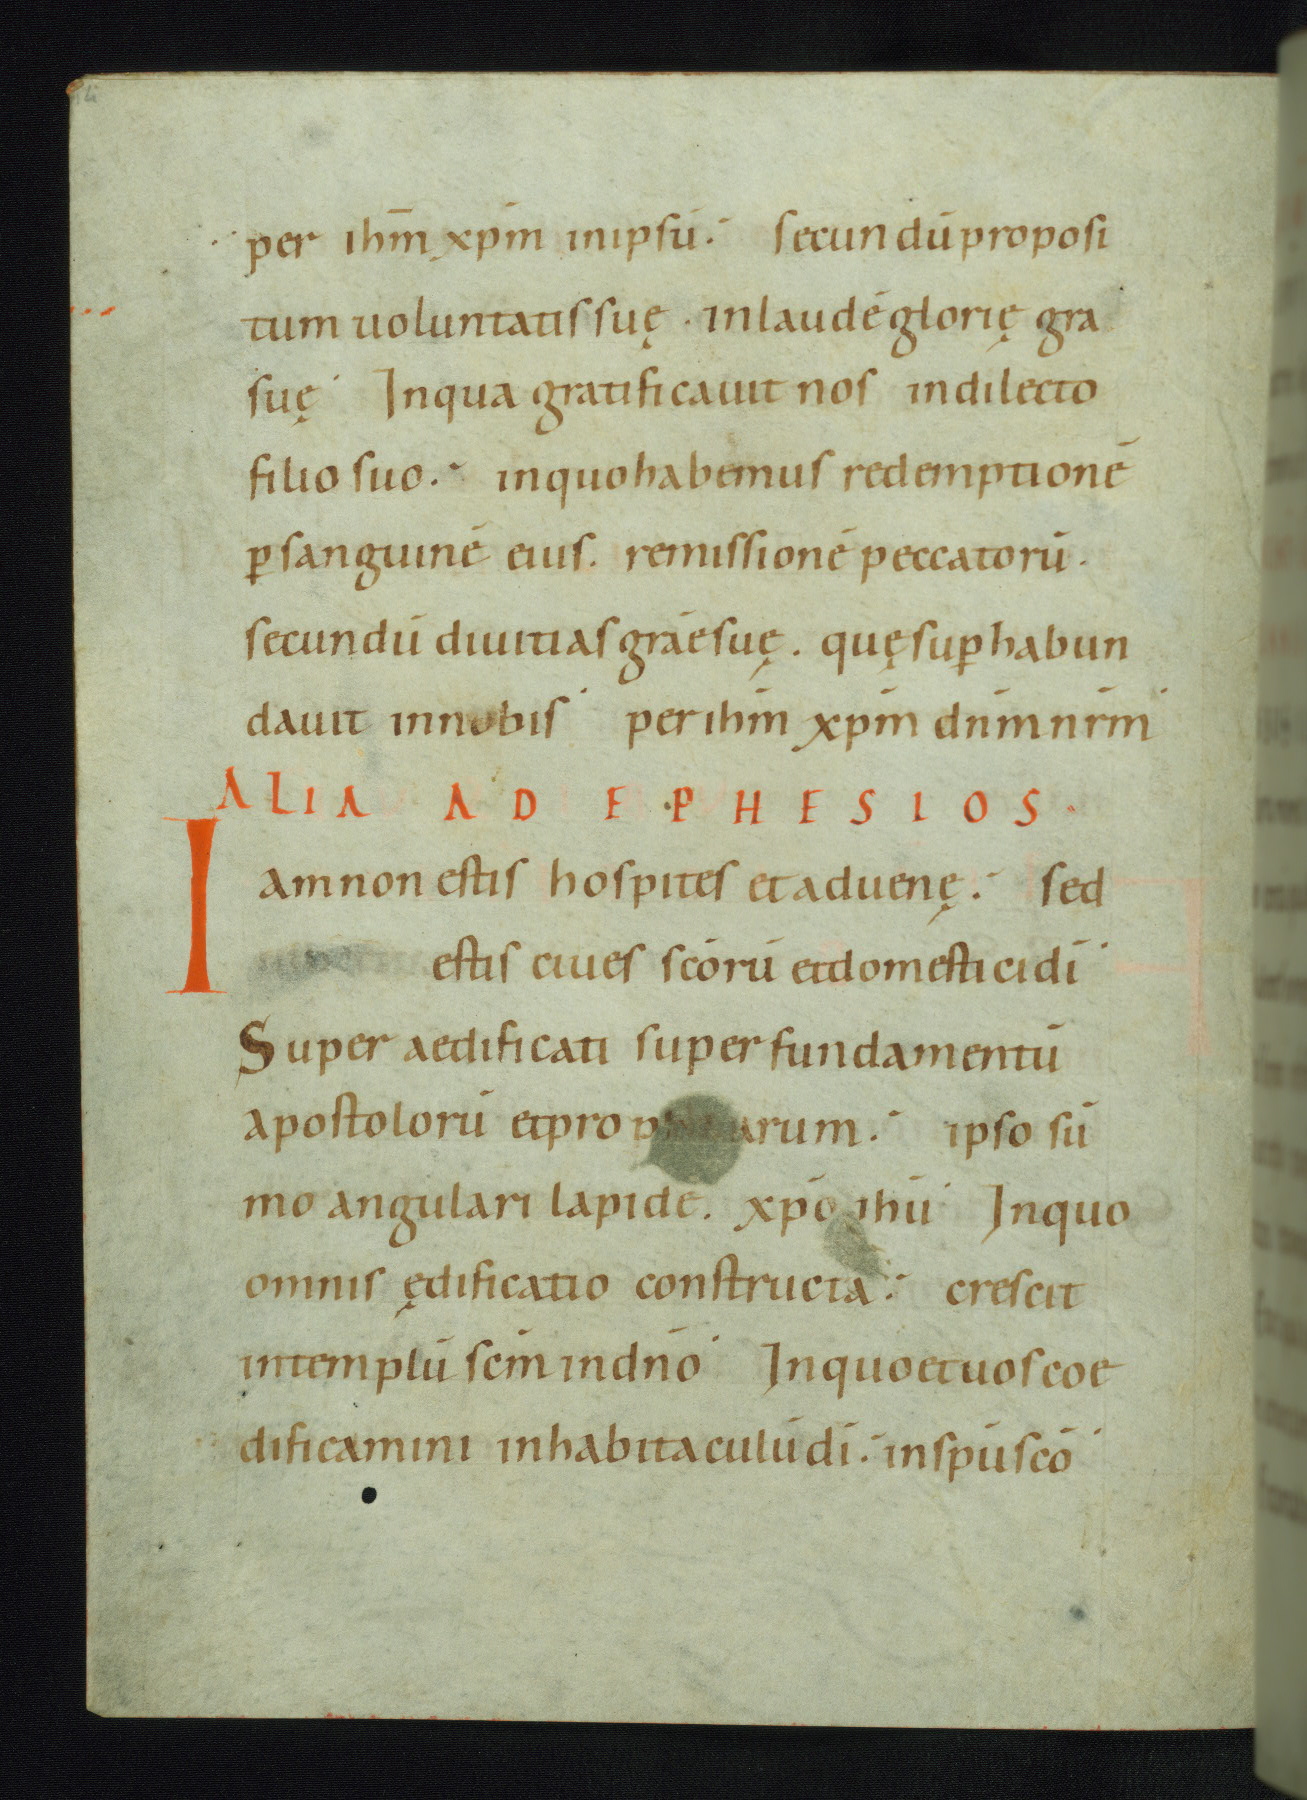 per ihm̄ xpm̄ inipsū. secundū proposi
tum uoluntatis suę . inlaudē glorię gra
suę Inqua gratificauit nos indilecto
filio suo. inquo habemus redemptionē
ꝑ sanguinē eius. remissionē peccatorū.
secundū diuitias grāe suę. quę suꝑhabun
dauit innobis per ihm̄ xpm̄ dnm̄ nrm̄
ALIA AD EPHESIOS.
Iam non estis hospites et aduenę. sed
estis ciues scōrū et domestici dī
Super aedificati super fundamentū
apostolorū et arum. ipso sū
mo angulari lapide. xpō ihū Inquo
omnis ędificatio constructa. crescit
intemplū scm̄ indnō Inquo et uos coe
dificamini inhabitaculū dī. inspū scō